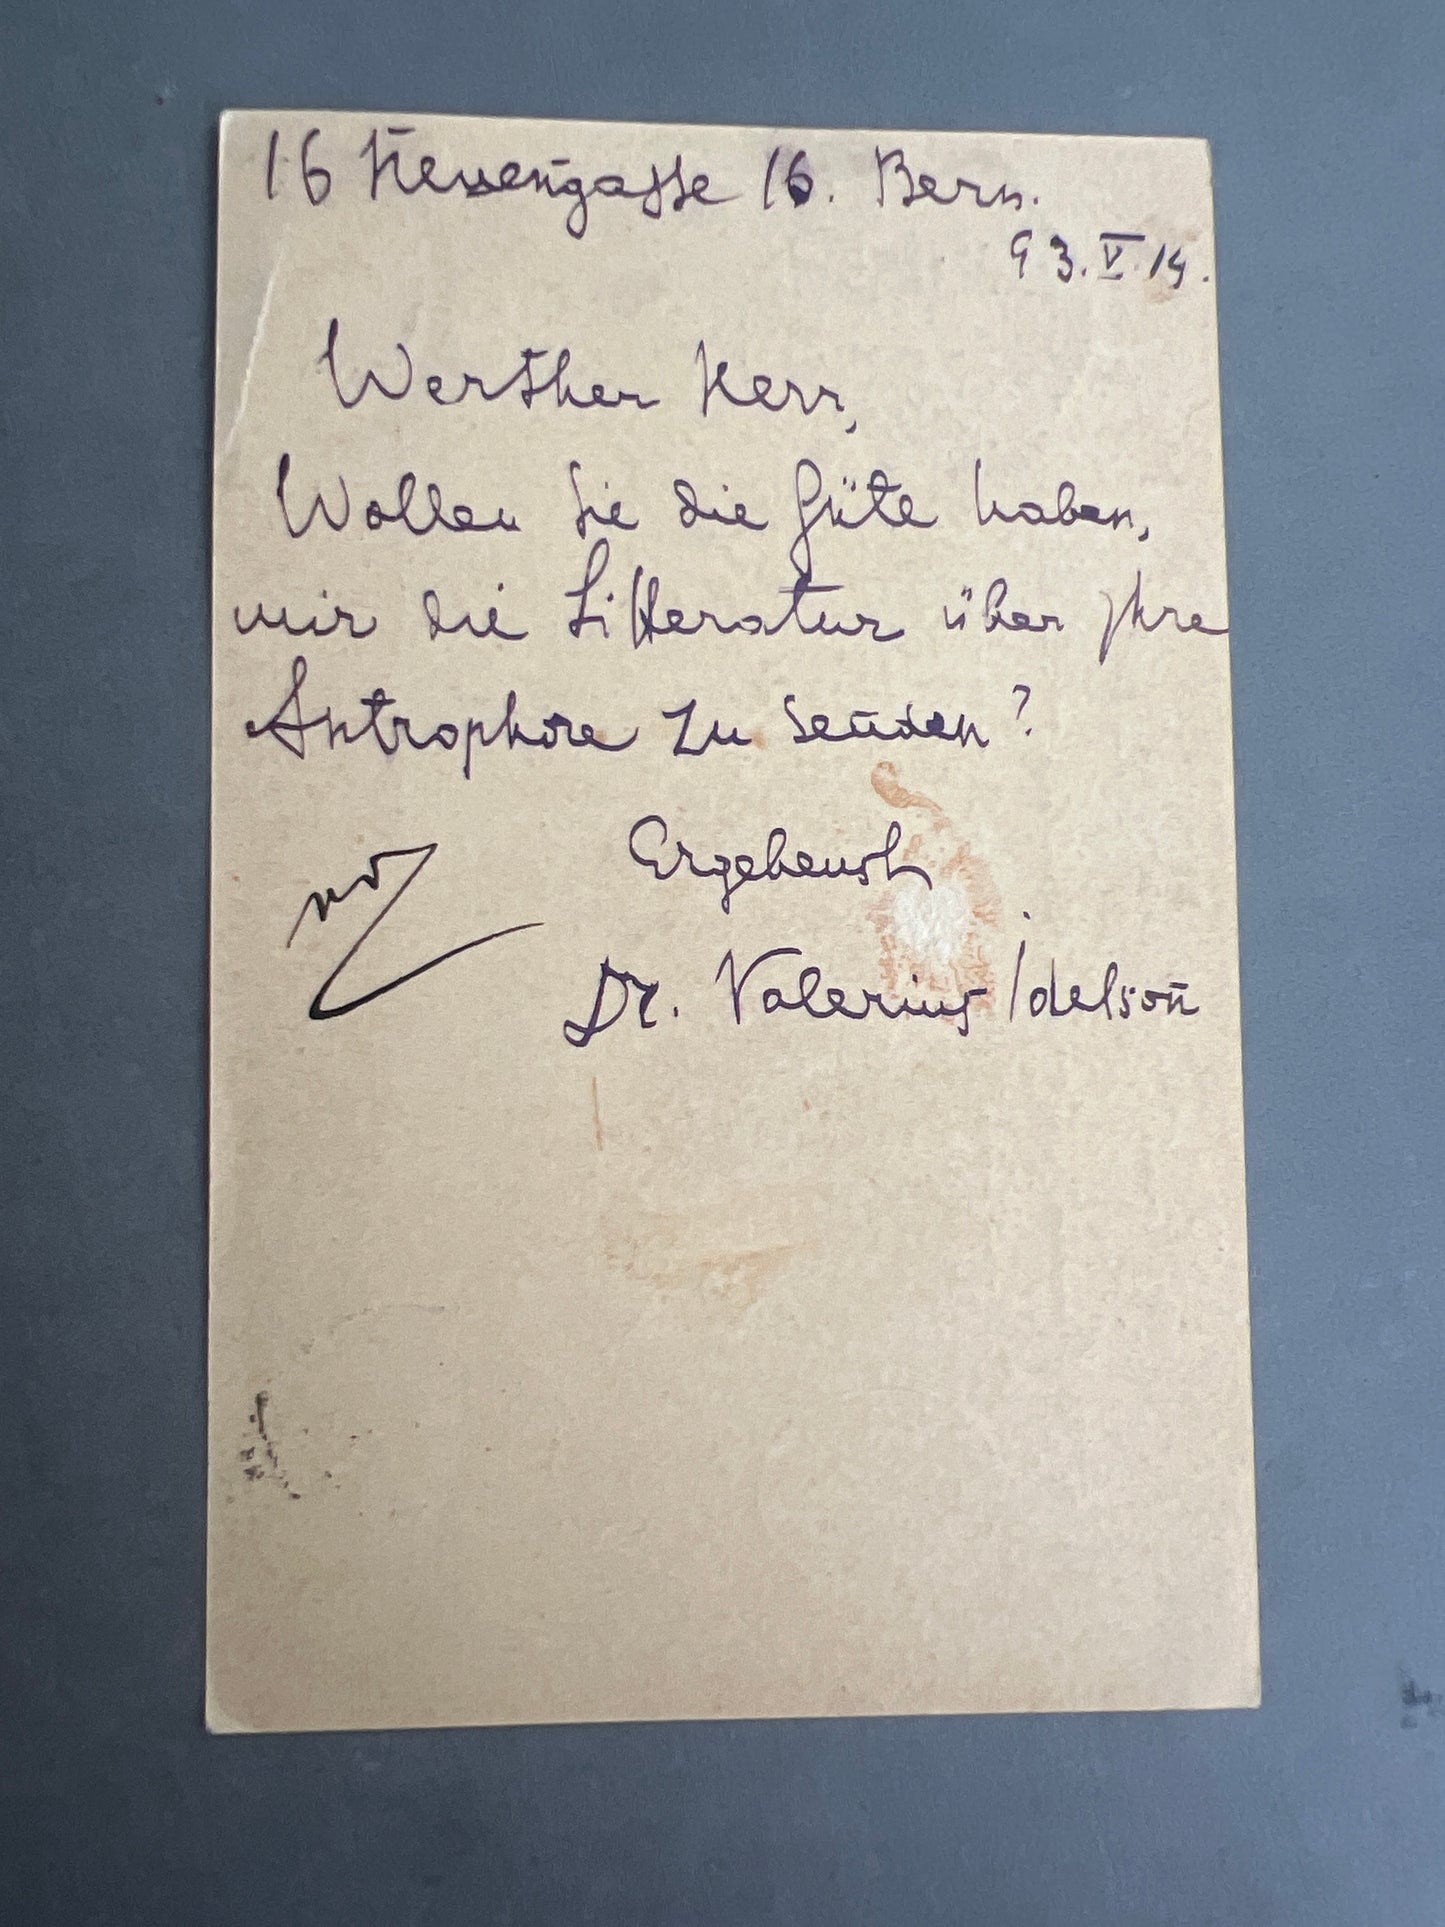 16 Herrengasse 16. Bern.
23. V. 14.
Werther Herr,
Wollen Sie die Güte haben,
mir die Litteratur über Ihre
Antrophore zu senden?
Ergebenst
Dr. Valerius Idelson